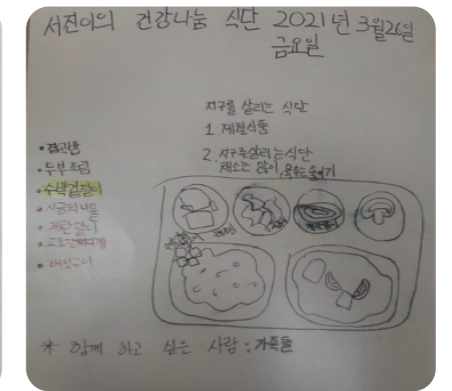 서진이의 건강나눔 식단 2021년 3월26일
금요일
지구를 살리는 식단
1. 제철식품
2. 지구를살리는식단
채소는 많이, 육류는 줄이기
• 잡곡밥
• 두부조림
• 수색겉절이
• 시금치나물
• 계란말이
• 버섯구이
* 함께 하고 싶은 사람 : 가족들